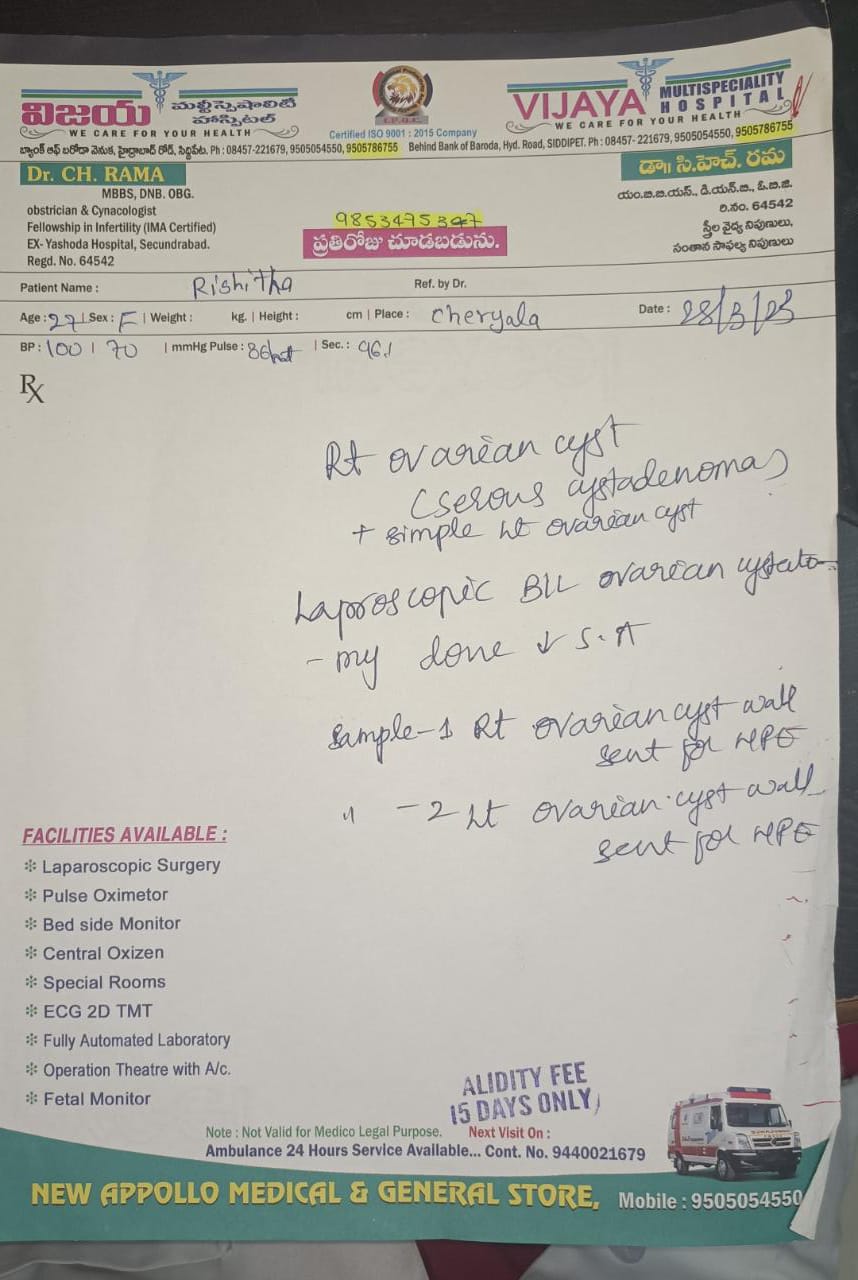 విజయ మల్టీస్పెషాలిటీ హాస్పిటల్
WE CARE FOR YOUR HEALTH
Certified ISO 9001 : 2015 Company
VIJAYA MULTISPECIALITY HOSPITAL
WE CARE FOR YOUR HEALTH
బ్యాంక్ ఆఫ్ బరోడా వెనుక, హైద్రాబాద్ రోడ్, సిద్దిపేట. Ph : 08457-221679, 9505054550, 9505786755 Behind Bank of Baroda, Hyd. Road, SIDDIPET. Ph : 08457- 221679, 9505054550, 9505786755
Dr. CH. RAMA
MBBS, DNB. OBG.
obstrician & Cynacologist
Fellowship in Infertility (IMA Certified)
EX- Yashoda Hospital, Secundrabad.
Regd. No. 64542
9853475347
ప్రతిరోజు చూడబడును.
డా॥ సి.హెచ్. రమ
యం.బి.బి.యస్., డి.యన్.బి., ఓ.బి.జి.
రి.నం. 64542
స్త్రీల వైద్య నిపుణులు,
సంతాన సాఫల్య నిపుణులు
Patient Name : Rishitha Ref. by Dr.
Age : 27 | Sex : F | Weight : kg. | Height : cm | Place : Cheryala Date : 28/3/23
BP : 100 | 70 | mmHg Pulse : 86 | Sec. : 96
Rx
Rt ovarian cyst
(serous cystadenoma)
+ simple Lt ovarian cyst
Laproscopic B/L ovarian cystecto-
- my done ↓ S.A
Sample-1 Rt ovarian cyst wall
sent for HPE
〃 - 2 Lt ovarian cyst wall
sent for HPE
FACILITIES AVAILABLE :
❉ Laparoscopic Surgery
❉ Pulse Oximetor
❉ Bed side Monitor
❉ Central Oxizen
❉ Special Rooms
❉ ECG 2D TMT
❉ Fully Automated Laboratory
❉ Operation Theatre with A/c.
❉ Fetal Monitor
ALIDITY FEE
15 DAYS ONLY
Note : Not Valid for Medico Legal Purpose. Next Visit On :
Ambulance 24 Hours Service Available... Cont. No. 9440021679
NEW APPOLLO MEDICAL & GENERAL STORE, Mobile : 9505054550